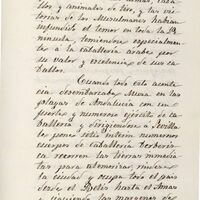 llos y animales de tiro, y las vic
torias de los Musulmanes habian
infundido el temor en toda la P
ninsula, temiendose especialmen
te a la Caballeria arabe por
su valor y excelencia de sus ca
ballos.
Cuando todo esto aconte
cia desembarcaba Muza en las
playas de Andalucia con un
fuerte y numeroso ejercito de ca
balleria y dirigiendose a Sevilla
le pone sitio interin numerosos
cuerpos de Caballeria berberis
ca recorren las tierras inmedia
tas para
la ciudad y ocupa todo el pais
desde el Betis hasta el Anas
y haciendo las margenes de